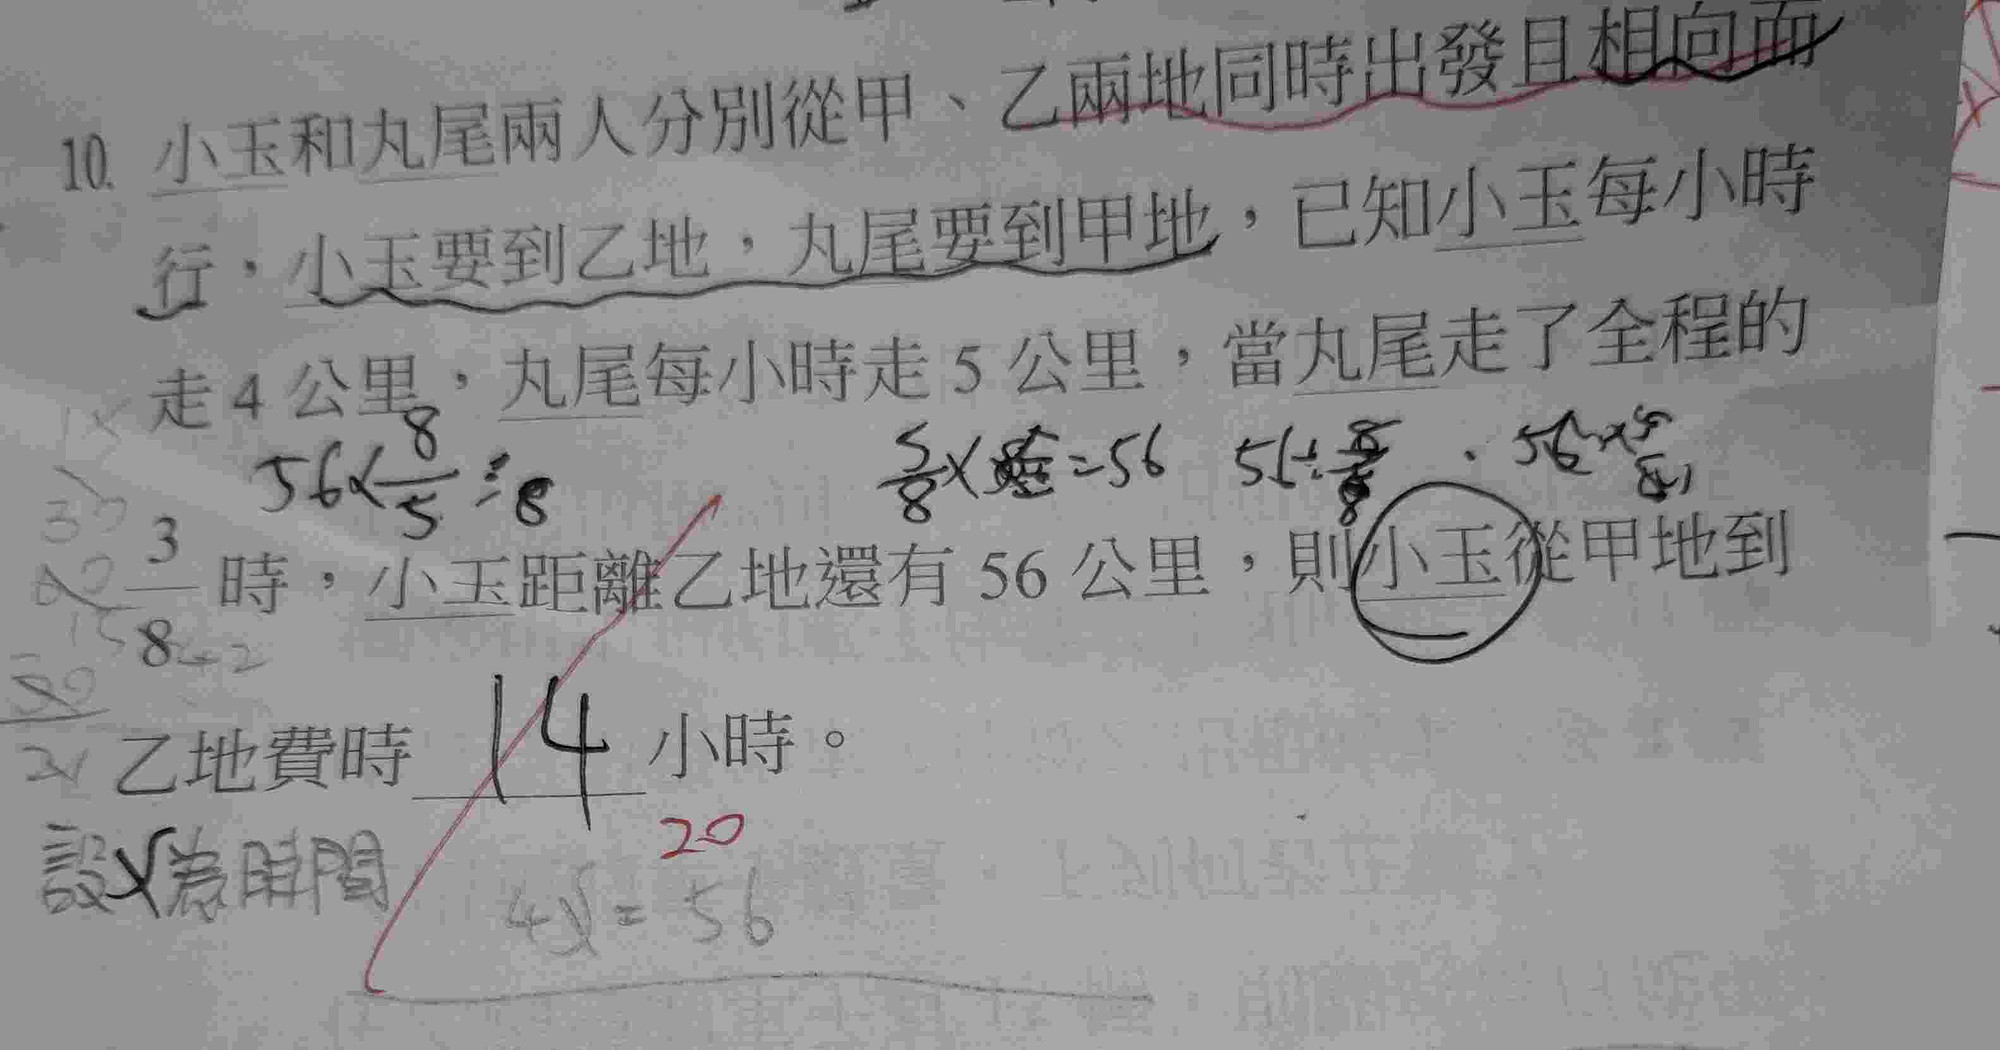 10. 小玉和丸尾兩人分別從甲、乙兩地同時出發且相向而
行,小玉要到乙地,丸尾要到甲地,已知小玉每小時
走4公里,丸尾每小時走5公里,當丸尾走了全程的
56×8/5÷8 5/8× =56 56÷ 56×
3/8時,小玉距離乙地還有56公里,則小玉從甲地到
乙地費時 14 小時。
20
設X為時間
4X=56